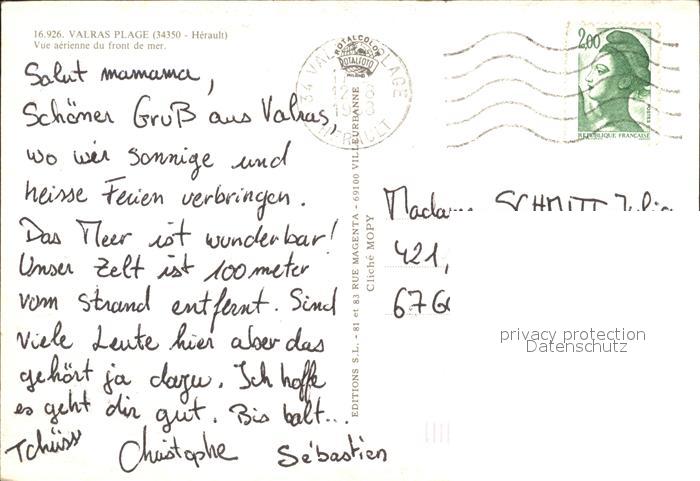 16.926. VALRAS PLAGE (34350 - Hérault)
Vue aérienne du front de mer.
Salut mamama,
Schöner Gruß aus Valras,
wo wir sonnige und
heisse Ferien verbringen.
Das Meer ist wunderbar!
Unser Zelt ist 100 meter
vom Strand entfernt. Sind
viele Leute hier aber das
gehört ja dazu. Ich hoffe
es geht dir gut. Bis balt...
Tchüss Christophe Sébastien
EDITIONS S.L. - 81 et 83 RUE MAGENTA - 69100 VILLEURBANNE
Cliché MOPY
ROTALCOLOR
ROTALFOTO
34 VALRAS PLAGE
HERAULT
2,00
POSTES
REPUBLIQUE FRANÇAISE
Madame SCHMITT Julie
421,
676
privacy protection
Datenschutz